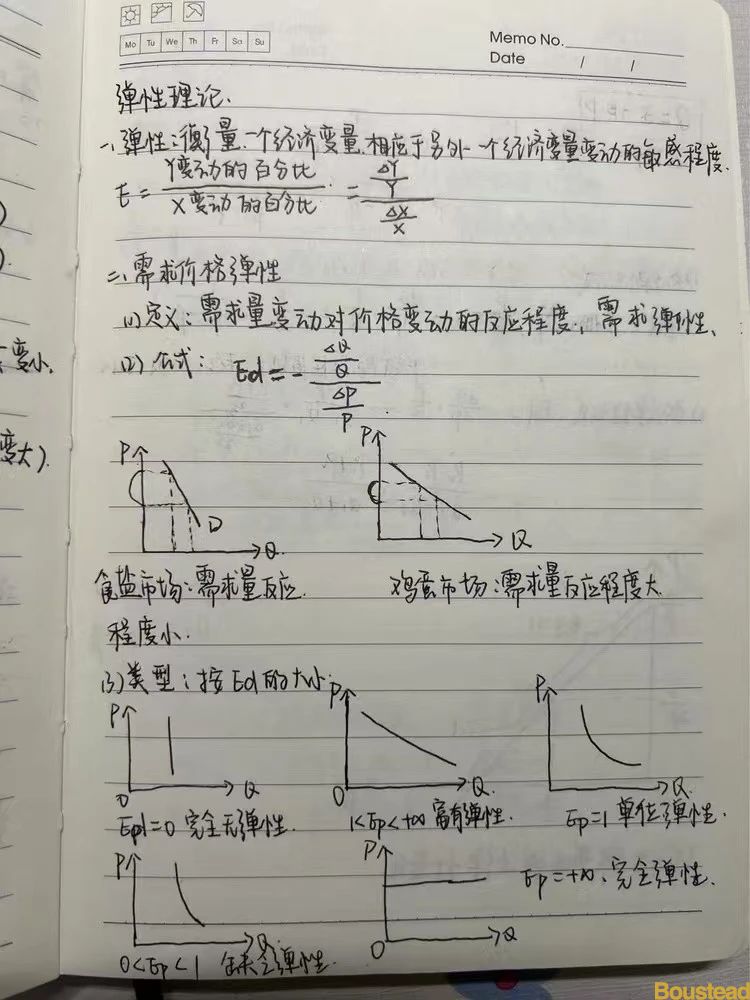 Mo Tu We Th Fr Sa Su
Memo No.
Date / /
弹性理论.
一、弹性:衡量一个经济变量相应于另外一个经济变量变动的敏感程度.
E = Y变动的百分比 / X变动的百分比 = ΔY/Y / ΔX/X
二、需求价格弹性
(1)定义:需求量变动对价格变动的反应程度,需求弹性、
(2)公式: Ed = - ΔQ/Q / ΔP/P .
P D Q
P Q
食盐市场:需求量反应
程度小.
鸡蛋市场:需求量反应程度大
(3)类型:按Ed的大小:
P O Q
P O Q
P Q
=0 完全无弹性.
1<Ep<+∞ 富有弹性.
Ep=1 单位弹性.
P Q
P O Q
0<Ep<1 缺乏弹性.
Ep=+∞、完全弹性.
变小.
变大).
Boustead